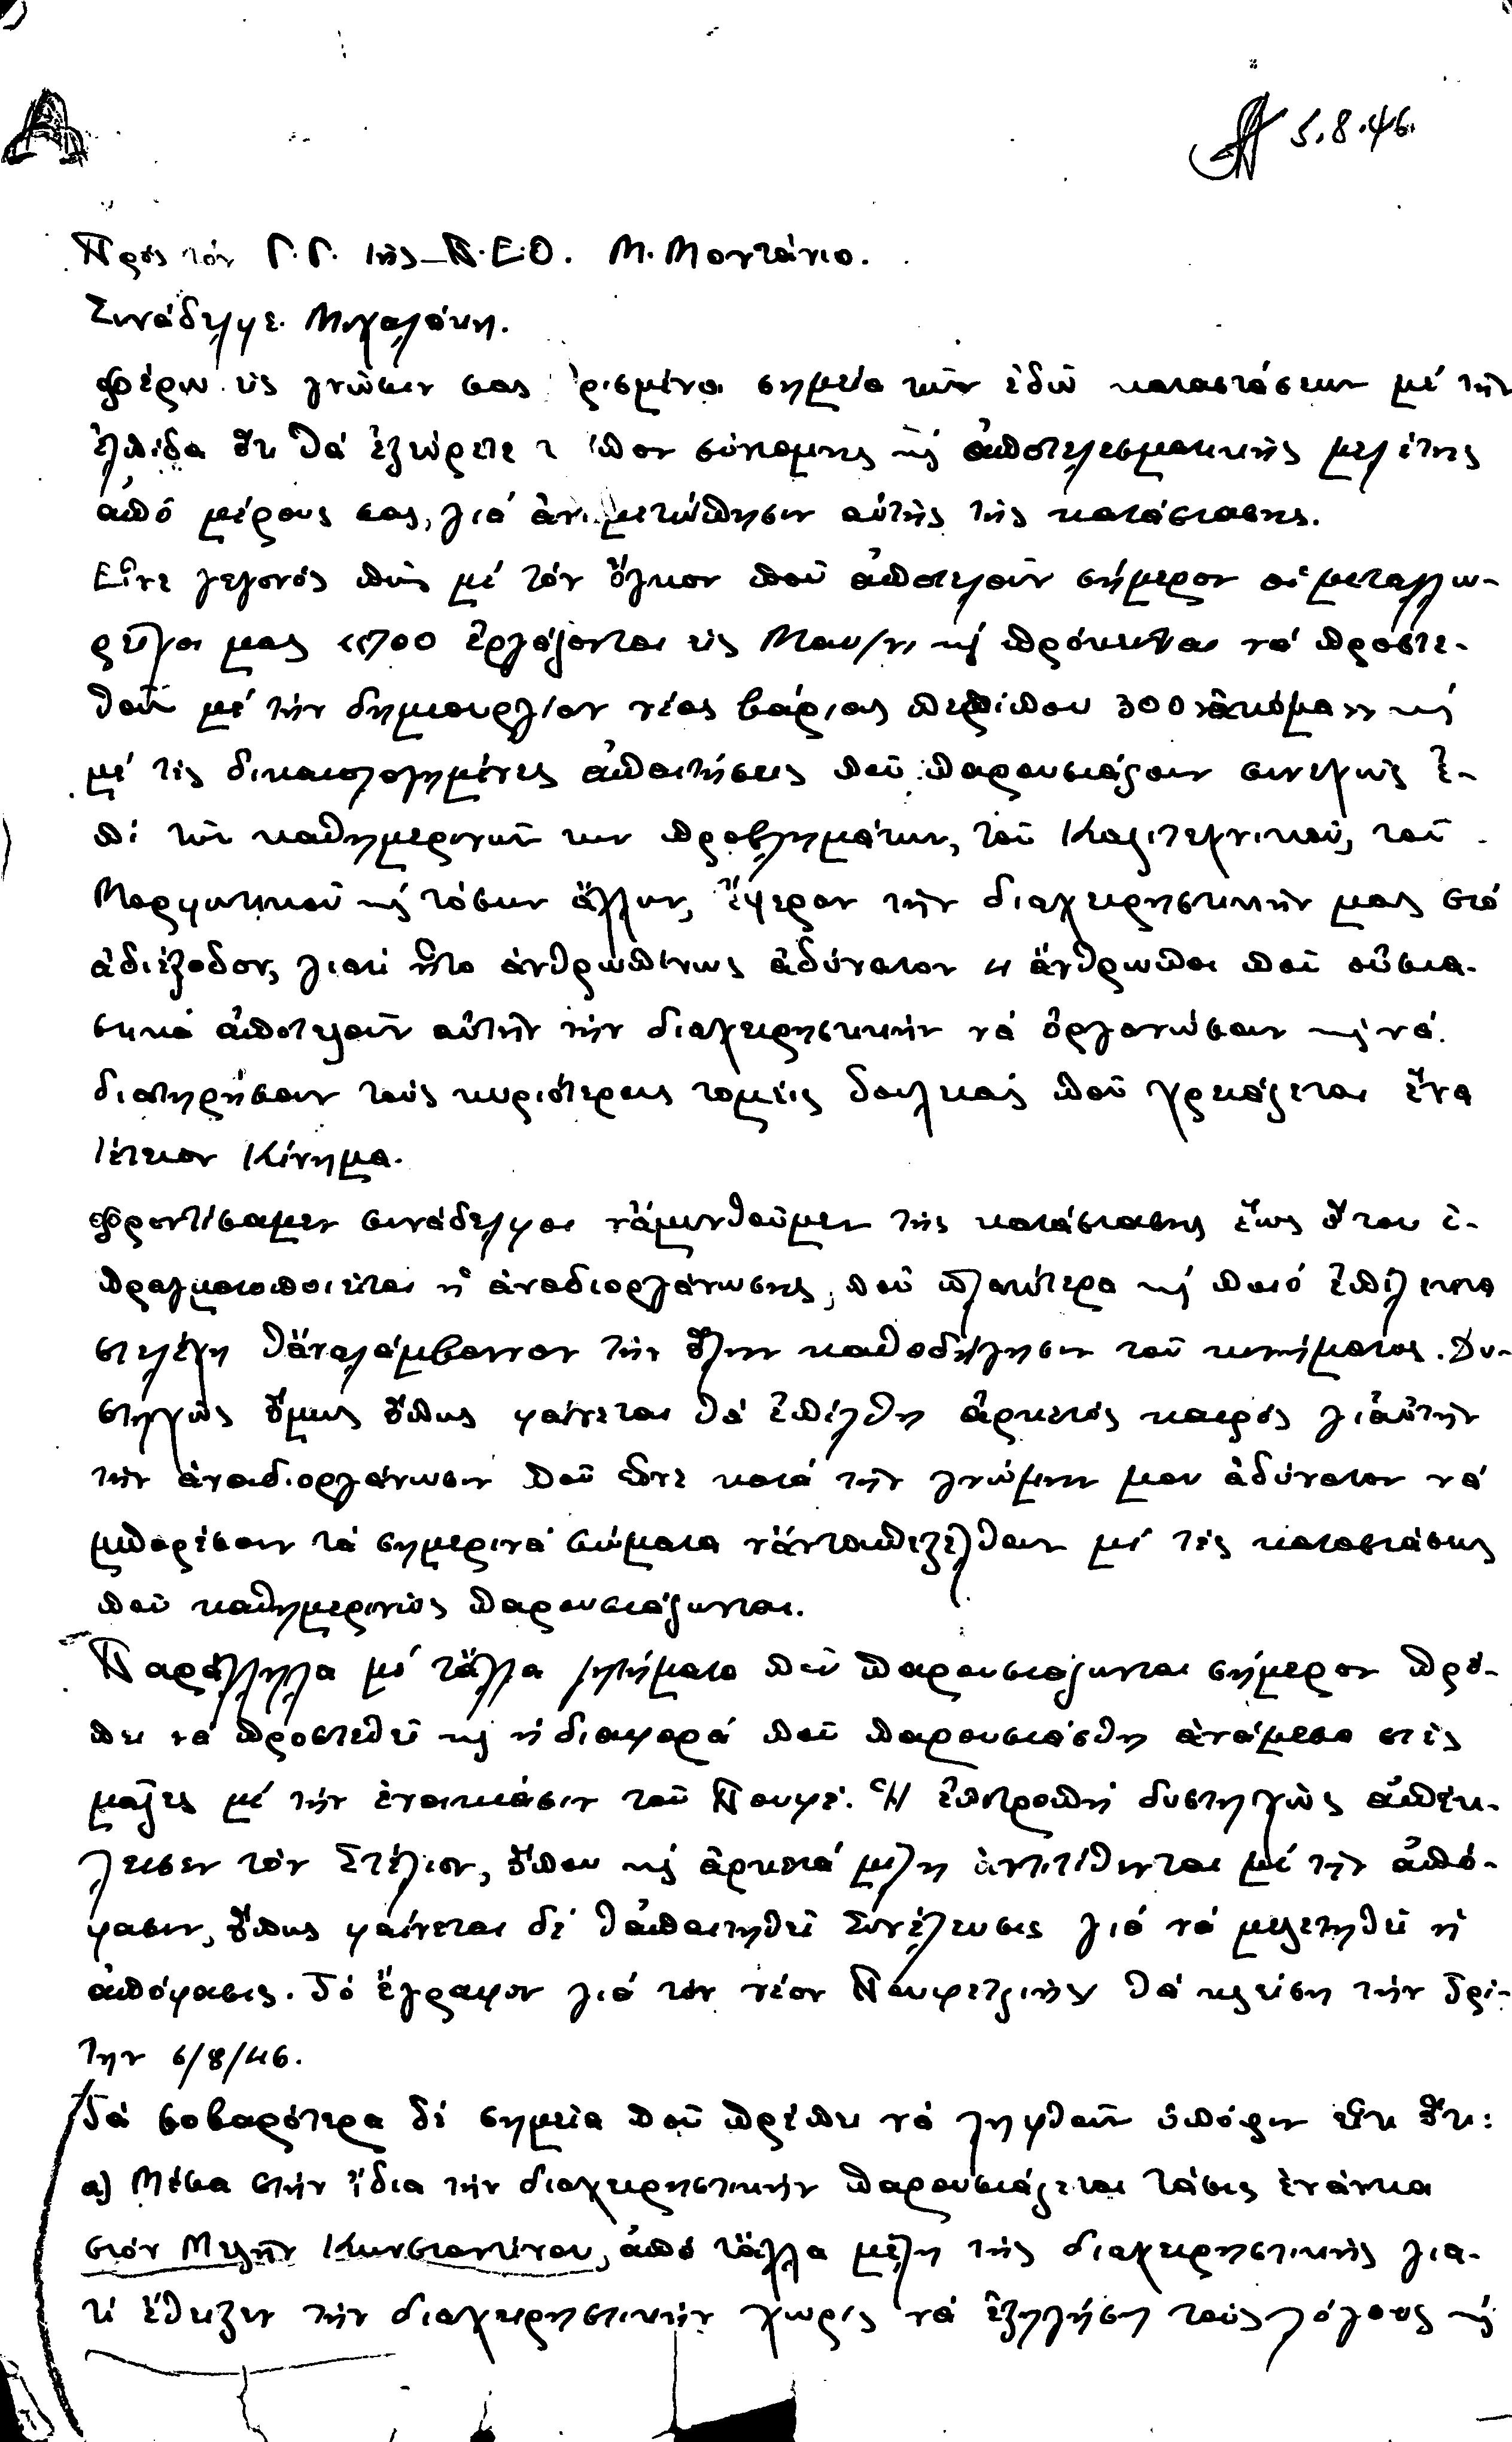 5.8.46.
Πρός τόν Γ.Γ. τῆς Π.Ε.Ο. Μ. Μοντάνιο.
Συνάδελφε Μιχαλάκη.
Φέρω εἰς γνῶσιν σας ὁρισμένα σημεῖα τῶν ἐδῶ καταστάσεων μέ τήν
ἐλπίδα ὅτι θά ἐξεύρετε τρόπον σύντομης κ' ἀποτελεσματικῆς μελέτης
ἀπό μέρους σας, γιά ἀντιμετώπησιν αὐτῆς τῆς κατάστασης.
Εἶνε γεγονός πώς μέ τόν ὄγκον πού ἀποτελοῦν σήμερον οἱ μεταλλω-
ρῦχοι μας 1700 ἐργάζονται εἰς Μαυ/νι κ' πρόκειται νά προστε-
θοῦν μέ τήν δημιουργίαν νέας βάρδιας περίπου 300 ἀκόμα κ'
μέ τίς δικαιολογημένες ἀπαιτήσεις πού παρουσιάζουν συνεχῶς ἐ-
πί τῶν καθημερινῶν των προβλημάτων, τοῦ Καλιτεχνικοῦ, τοῦ
Μορφωτικοῦ κ' τόσων ἄλλων, ἔφερον τήν διαχειρηστικήν μας στό
ἀδιέξοδον, γιατί ἦτο ἀνθρωπίνως ἀδύνατον 4 ἄνθρωποι πού οὐσια-
στικά ἀποτελοῦν αὐτήν τήν διαχειρηστικήν νά ὀργανώσουν κ' νά
διατηρήσουν τούς κυριότερους τομεῖς δουλειᾶς πού χρειάζεται ἕνα
τέτοιον Κίνημα.
Φροντίσαμεν συνάδελφοι νἀμυνθοῦμεν τῆς κατάστασης ἕως ὅτου ἐ-
πραγματοποιεῖται ἡ ἀναδιοργάνωσης, πού πλατύτερα κ' ποιό ἐπίλεκτα
στελέχη θἀναλάμβαννον τήν ὅλην καθοδήγησιν τοῦ κινήματος. Δυ-
στηχῶς ὅμως ὅπως φαίνεται θά ἐπέλθη ἀρκετός καιρός γιαὐτήν
τήν ἀναδιοργάνωσιν πού εἶνε κατά τήν γνώμην μου ἀδύνατον νά
μπορέσουν τά σημερινά σώματα νἀνταπεξέλθουν μέ τές καταστάσεις
πού καθημερινῶς παρουσιάζωνται.
Παράλληλα μέ τἄλλα ζητήματα πού παρουσιάζωνται σήμερον πρέ-
πει νά προστεθεῖ κ' ἡ διαφορά πού παρουσιάσθη ἀνάμεσα στές
μάζες μέ τήν ἐνοικίασιν τοῦ Πουφέ. Ἡ ἐπιτροπή δυστηχῶς ἀπέκ-
λεισεν τόν Στέλιον, ὅπου κ' ἀρκετά μέλη ἀντιτίθενται μέ τήν ἀπό-
φασιν, ὅπως φαίνεται δέ θἀπαιτηθεῖ Συνέλευσις γιά νά μελετηθεῖ ἡ
ἀπόφασις. Τό ἔγραφον γιά τόν νέον Πουφετζιήν θά κλείση τήν Τρί-
την 6/8/46.
Τά σοβαρότερα δέ σημεῖα πού πρέπει νά ληφθοῦν ὑπόψιν εἶνε ὅτι:
α) Μέσα στήν ἴδια τήν διαχειρηστικήν παρουσιάζεται τάσις ἐνάντια
στόν Μελήν Κωνσταντίνου, ἀπό τἄλλα μέλη τῆς διαχειρηστικῆς για-
τί ἔθιξεν τήν διαχειρηστικήν χωρίς νά ἐξηγήση τούς λόγους κ'